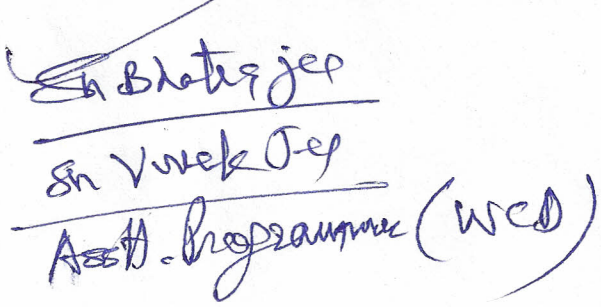 Sh Bhatia jee
Sh Vivek Jee
Asstt. Programmer (WCD)